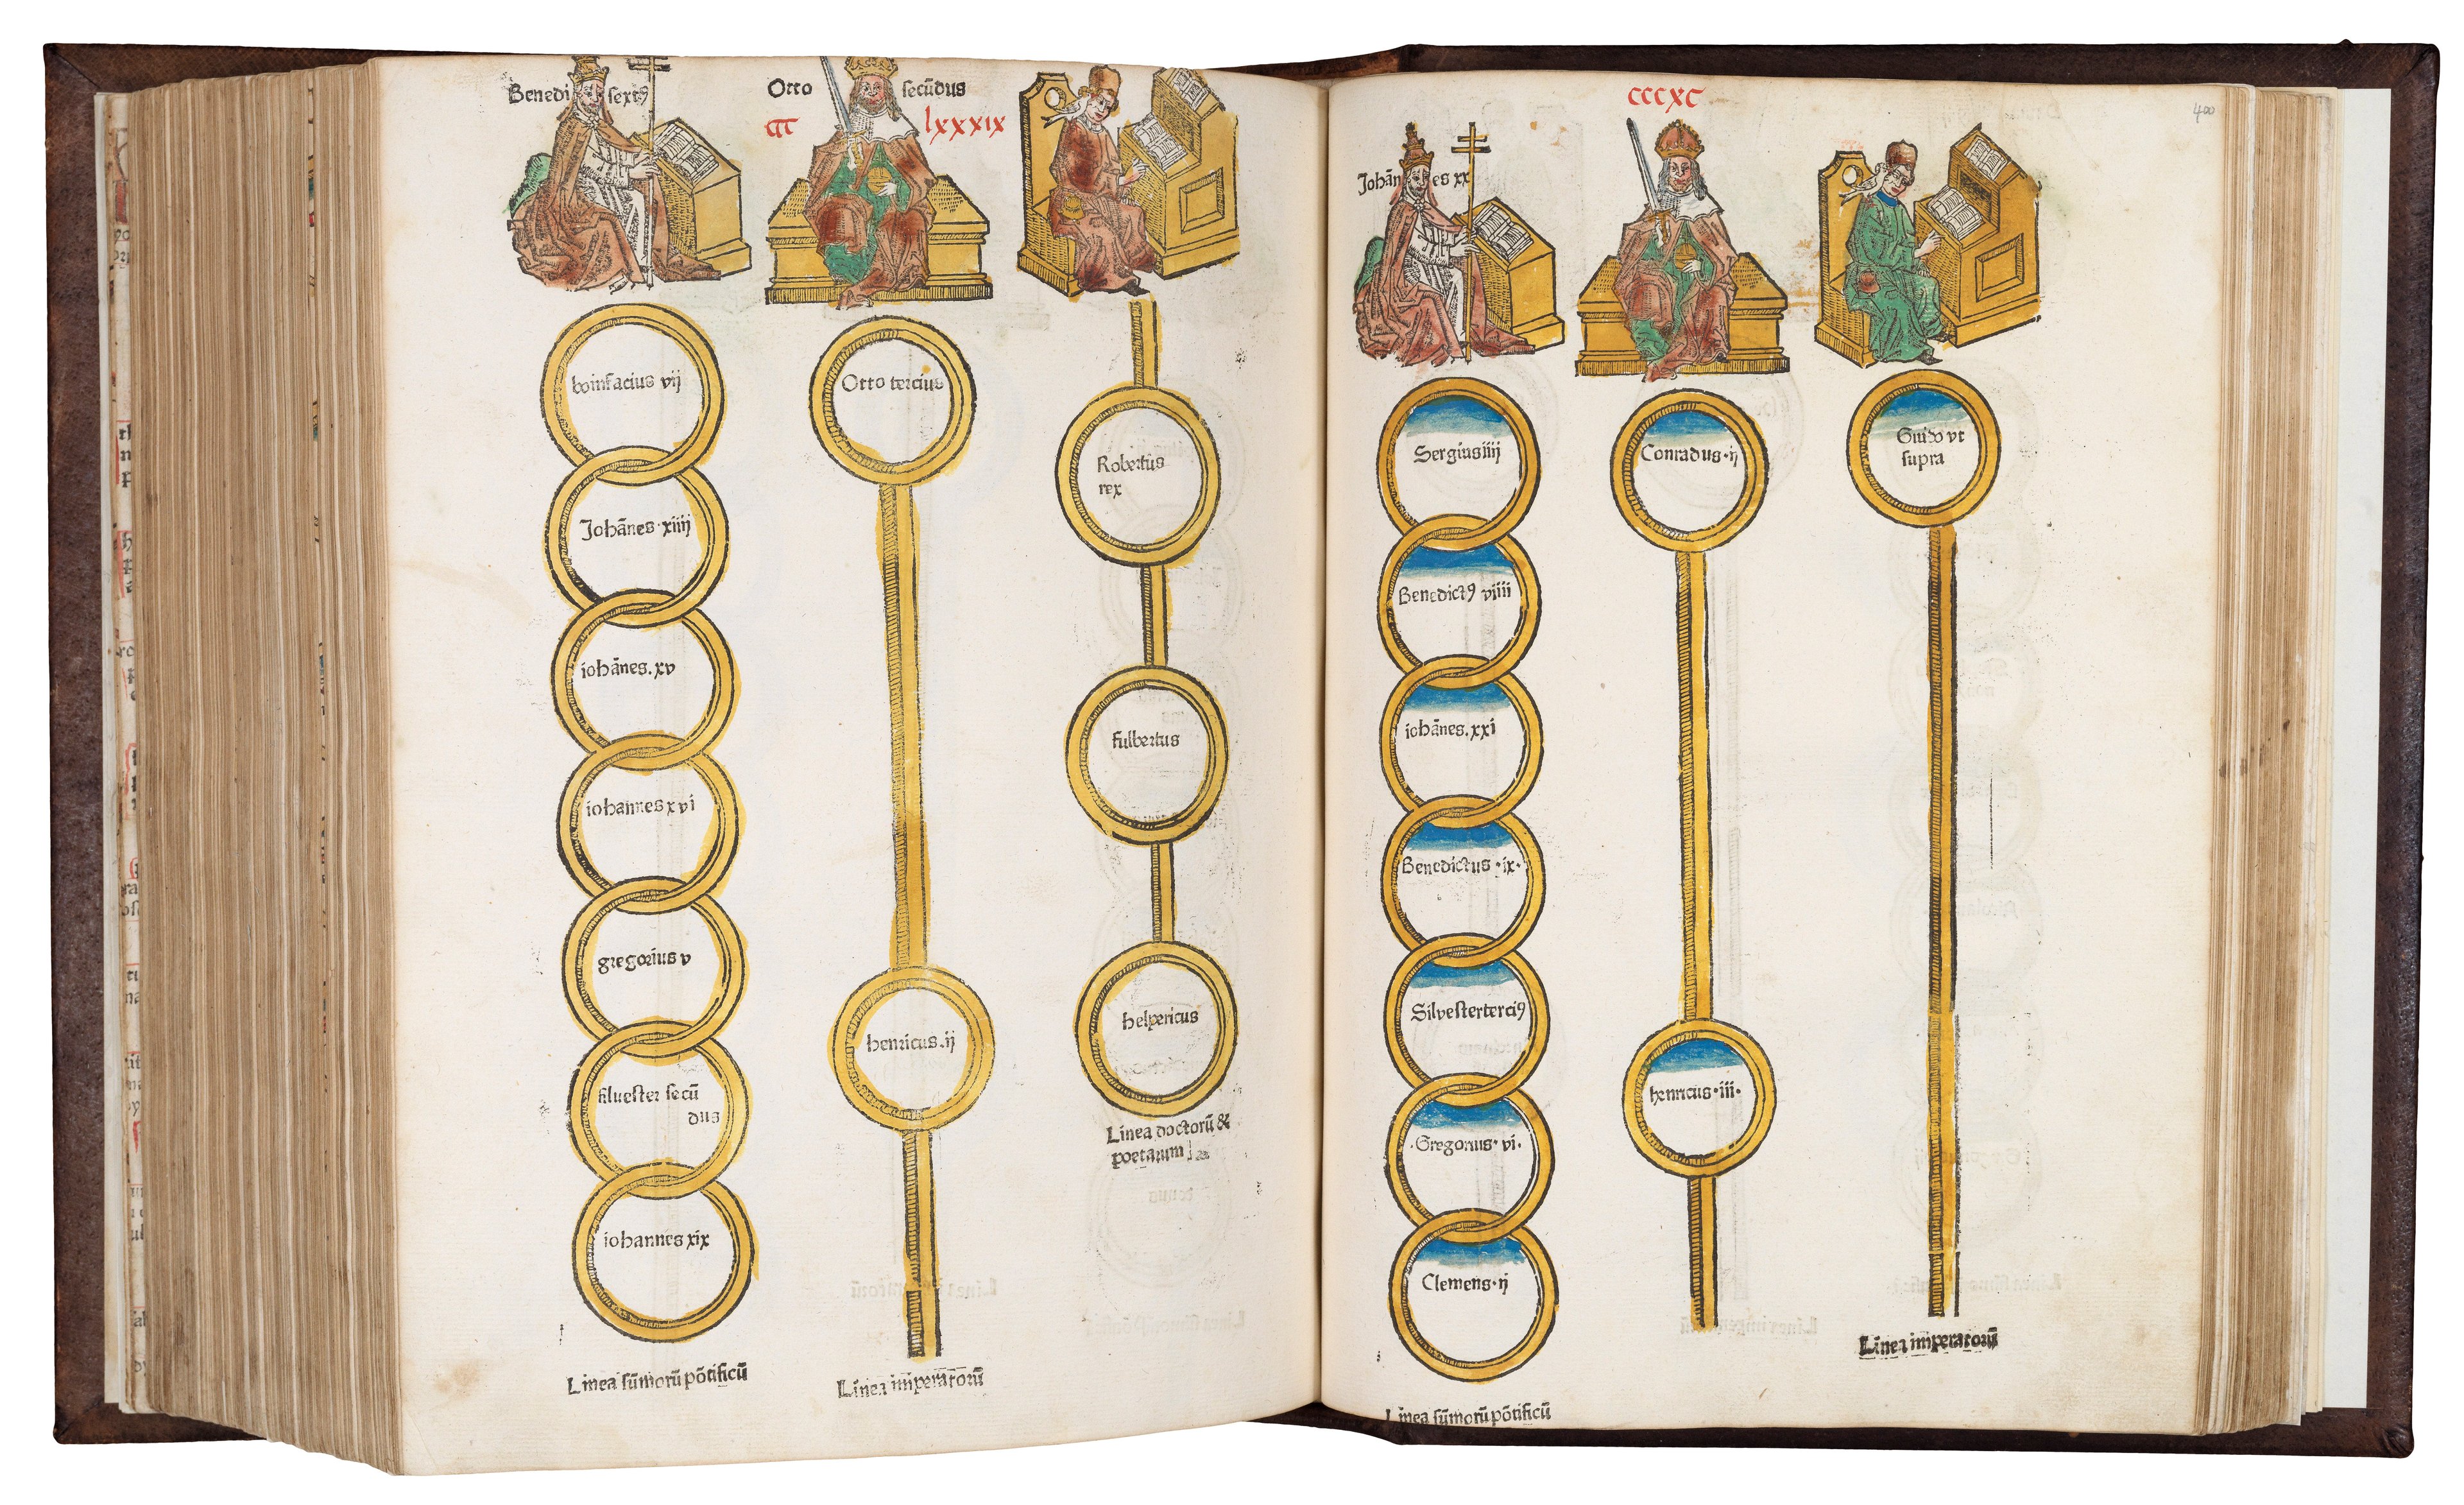 Benedi sextꝰ
Otto secūdus
ccc lxxxix
boinfacius vij
Johānes·xiiij
iohānes.xv
iohannes xvi
gregorius v
siluester secū
dus
iohannes xix
Linea sūmorū pōtificū
Otto tercius
henricus.ij
Linea imperatorū
Robertus
rex
fulbertus
helpericus
Linea doctorū &
poetarum
cccxc
400
Johān es xx
Sergius iiij
Benedictꝰ viiii
iohānes.xxi
Benedictus·ix·
Silvester terciꝰ
·Gregorius·vi·
Clemens·ij
Linea sūmorū pōtificū
Conradus·ij
henricus·iii·
Guido vt
supra
Linea imperatorū